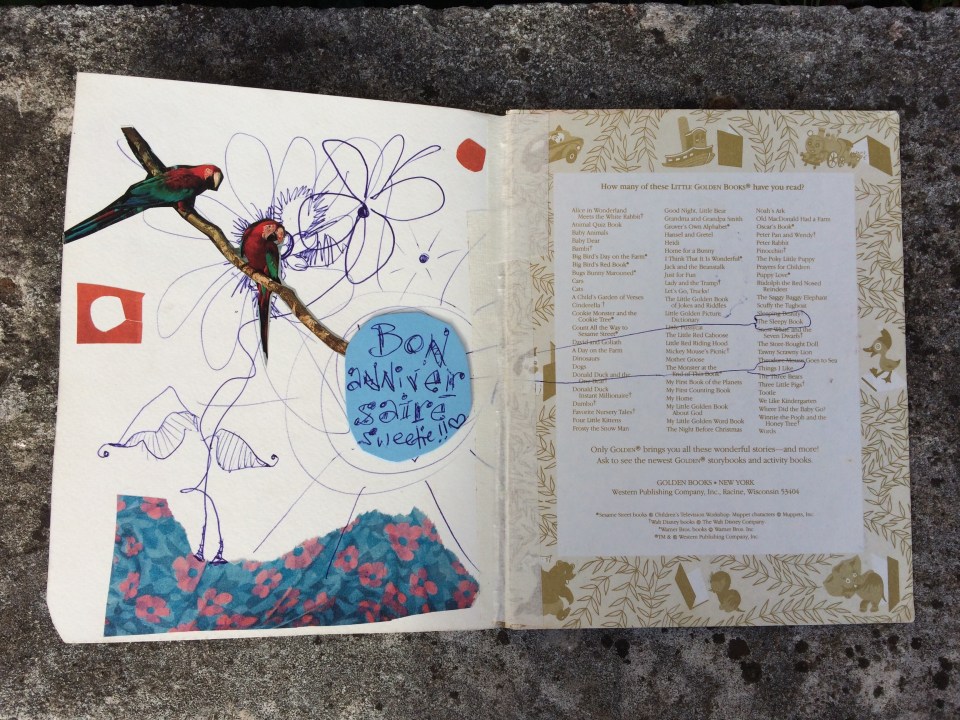 BON
anniver
saire
sweetie!!
How many of these LITTLE GOLDEN BOOKS® have you read?
Alice in Wonderland
Meets the White Rabbit†
Animal Quiz Book
Baby Animals
Baby Dear
Bambi†
Big Bird's Day on the Farm*
Big Bird's Red Book*
Bugs Bunny Marooned
Cars
Cats
A Child's Garden of Verses
Cinderella†
Cookie Monster and the
Cookie Tree*
Count All the Way to
Sesame Street*
David and Goliath
A Day on the Farm
Dinosaurs
Dogs
Donald Duck and the
Donald Duck
Instant Millionaire†
Dumbo†
Favorite Nursery Tales†
Four Little Kittens
Frosty the Snow Man
Good Night, Little Bear
Grandma and Grandpa Smith
Grover's Own Alphabet*
Hansel and Gretel
Heidi
Home for a Bunny
I Think That It Is Wonderful*
Jack and the Beanstalk
Just for Fun
Lady and the Tramp†
Let's Go, Trucks!
The Little Golden Book
of Jokes and Riddles
Little Golden Picture
Dictionary
Little Pussycat
The Little Red Caboose
Little Red Riding Hood
Mickey Mouse's Picnic†
Mother Goose
The Monster at the
End of This Book*
My First Book of the Planets
My First Counting Book
My Home
My Little Golden Book
About God
My Little Golden Word Book
The Night Before Christmas
Noah's Ark
Old MacDonald Had a Farm
Oscar's Book*
Peter Pan and Wendy†
Peter Rabbit
Pinocchio†
The Poky Little Puppy
Prayers for Children
Puppy Love*
Rudolph the Red Nosed
Reindeer
The Saggy Baggy Elephant
Scuffy the Tugboat
Sleeping Beauty†
The Sleepy Book
Snow White and the
Seven Dwarfs†
The Store-Bought Doll
Tawny Scrawny Lion
Theodore Mouse Goes to Sea
Things I Like
The Three Bears
Three Little Pigs†
Tootle
We Like Kindergarten
Where Did the Baby Go?
Winnie the Pooh and the
Honey Tree†
Words
Only GOLDEN® brings you all these wonderful stories—and more!
Ask to see the newest GOLDEN® storybooks and activity books.
GOLDEN BOOKS • NEW YORK
Western Publishing Company, Inc., Racine, Wisconsin 53404
*Sesame Street books © Children's Television Workshop. Muppet characters © Muppets, Inc.
†Walt Disney books © The Walt Disney Company
Warner Bros. books © Warner Bros. Inc.
®TM & © Western Publishing Company, Inc.